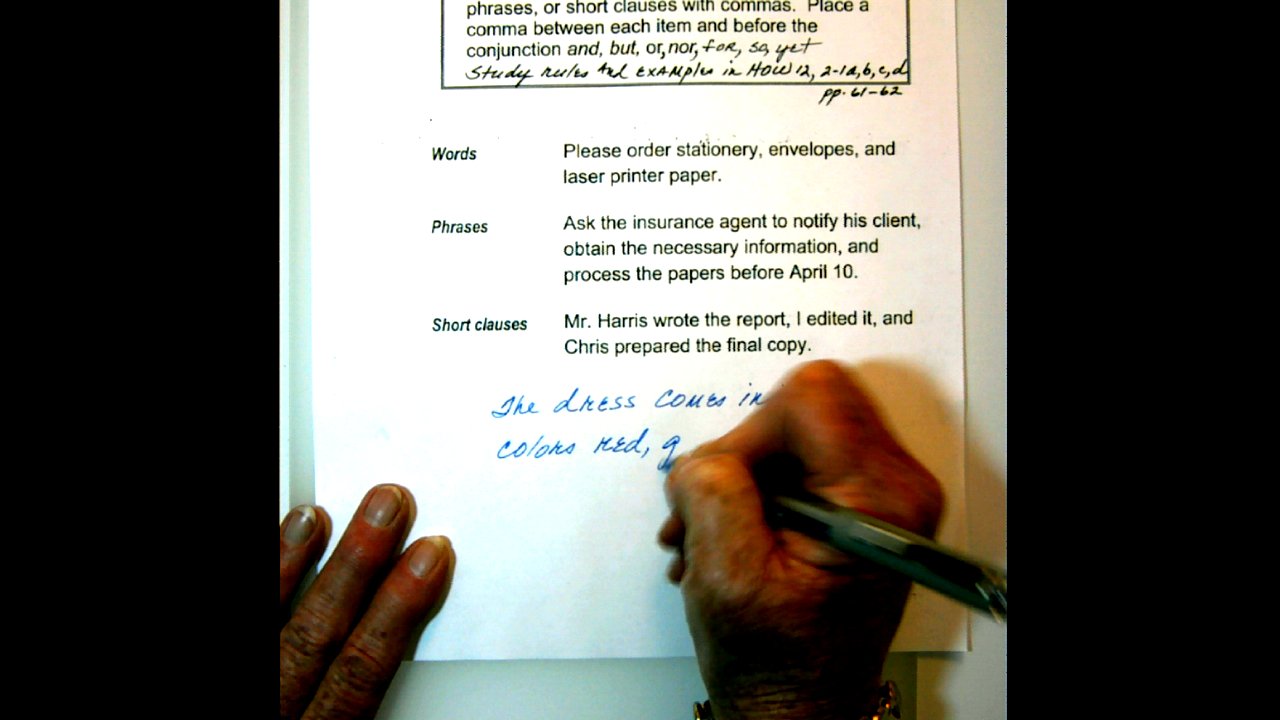 phrases, or short clauses with commas. Place a
comma between each item and before the
conjunction and, but, or, nor, for, so, yet
Study rules and examples in HOW 12, 2-1a,b,c,d
pp. 61-62
Words
Please order stationery, envelopes, and
laser printer paper.
Phrases
Ask the insurance agent to notify his client,
obtain the necessary information, and
process the papers before April 10.
Short clauses
Mr. Harris wrote the report, I edited it, and
Chris prepared the final copy.
The dress comes in
colors red, g